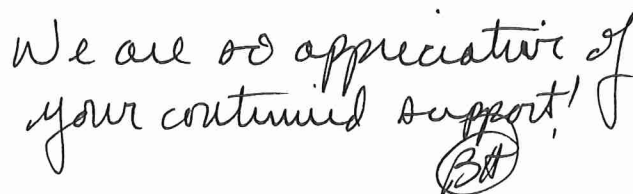 We are so appreciative of
your continued support!
BH